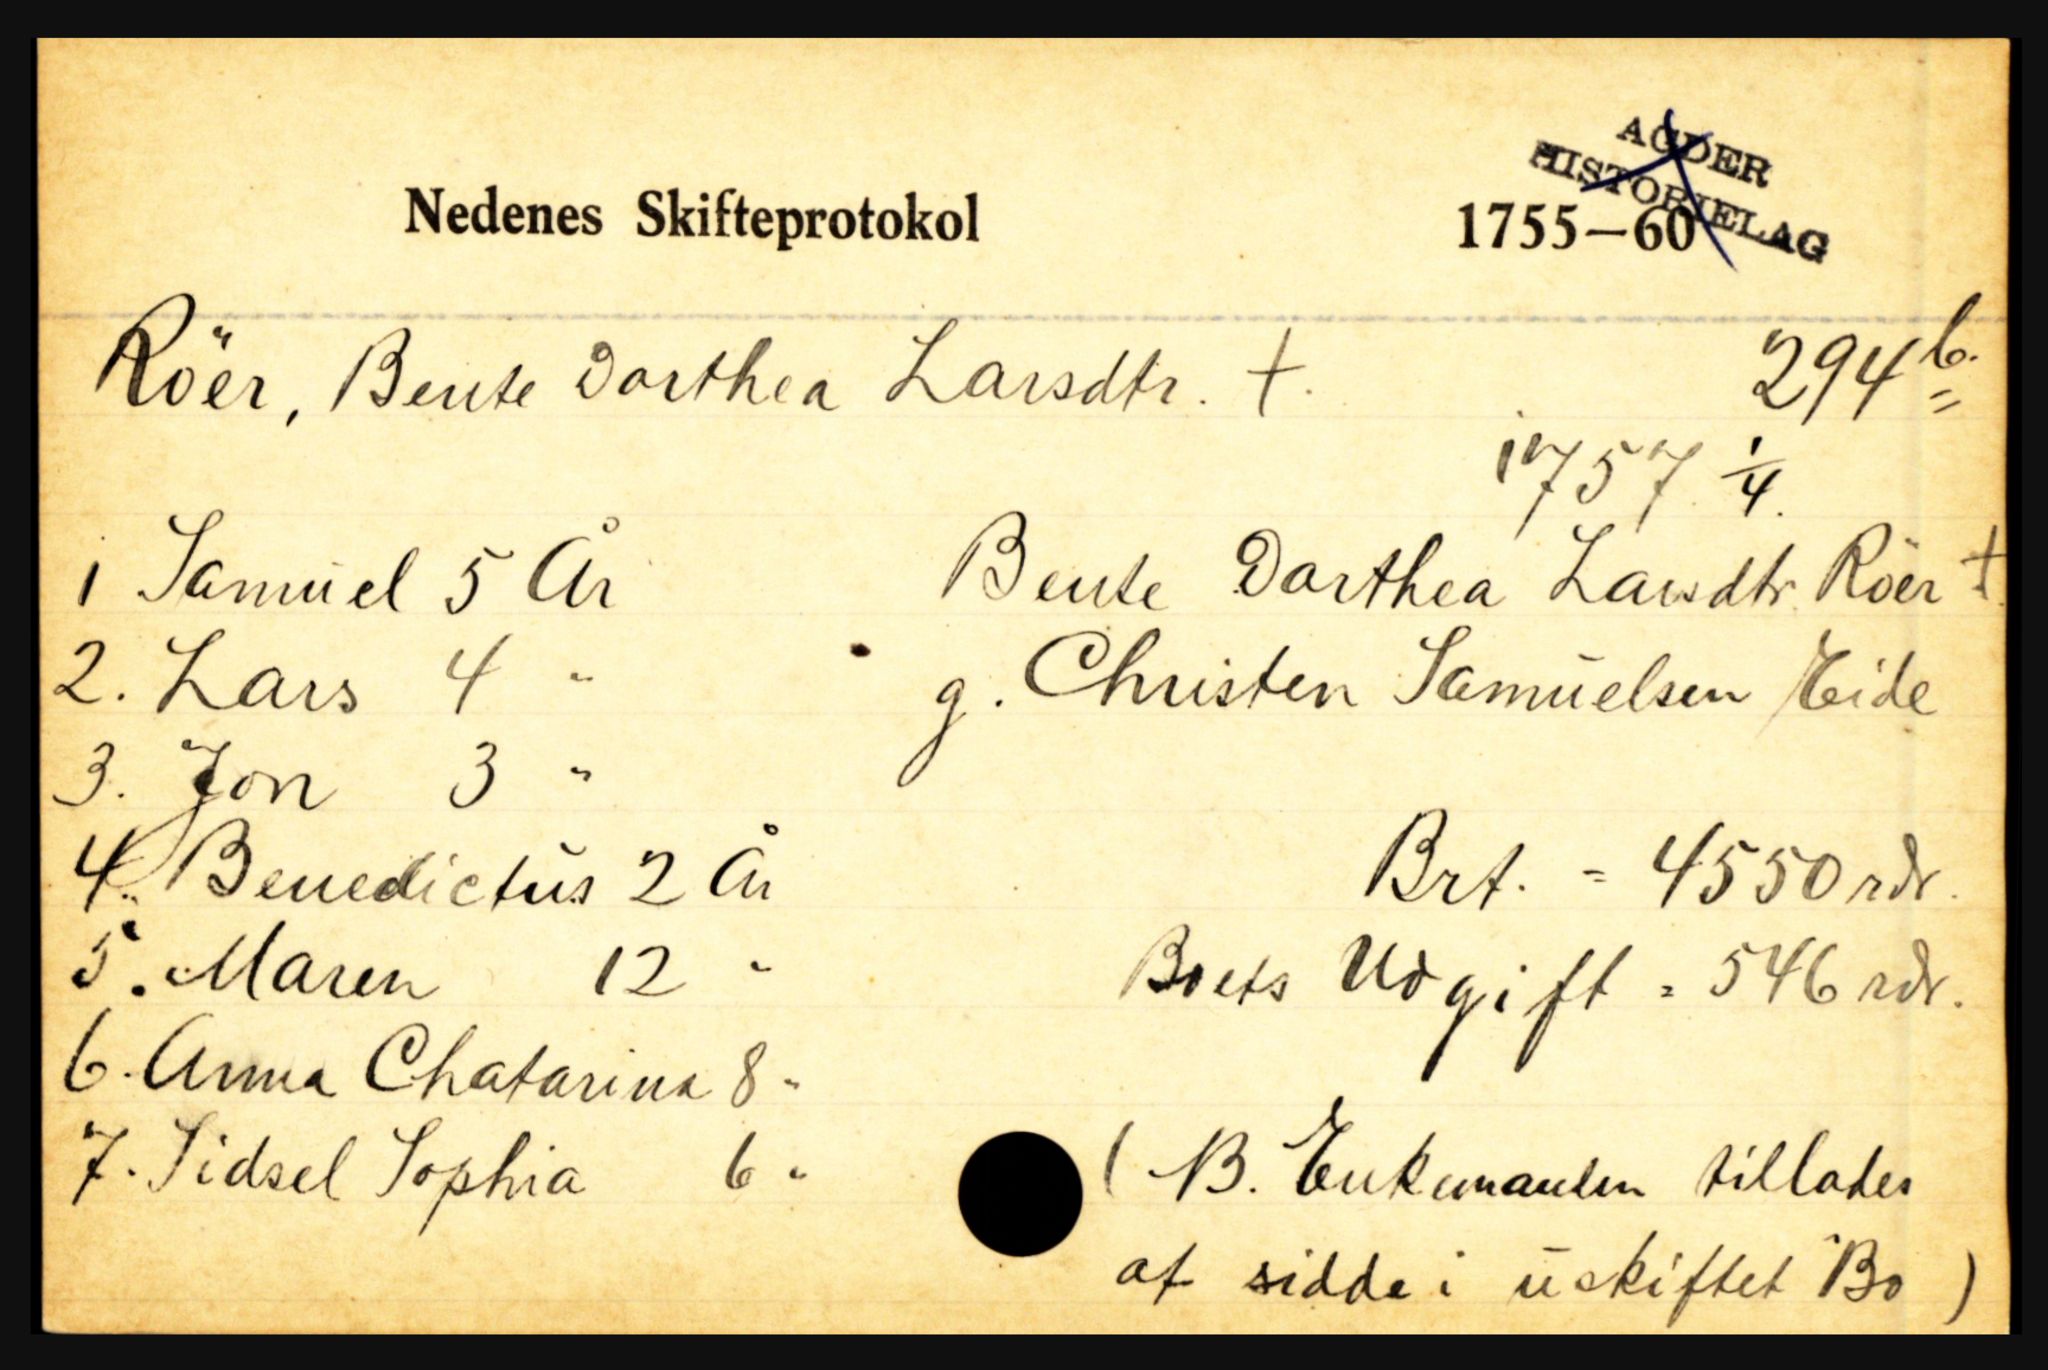 AGDER
HISTORIELAG
Nedenes Skifteprotokol 1755–60
Röer, Bente Dorthea Larsdtr. †. 294 b.
1757 1/4.
1 Samŭel 5 År
2. Lars 4 "
3. Jon 3 "
4. Benedictŭs 2 År
5. Maren 12 "
6. Anna Chatarina 8 "
7. Sidsel Sophia 6 "
Bente Dorthea Larsdtr. Röer †.
g. Christen Samŭelsen Eide
Brt. = 4550 rdr.
Boets Udgift = 546 rdr.
( NB. Enkemanden tillades
at sidde i ŭskiftet Bo )